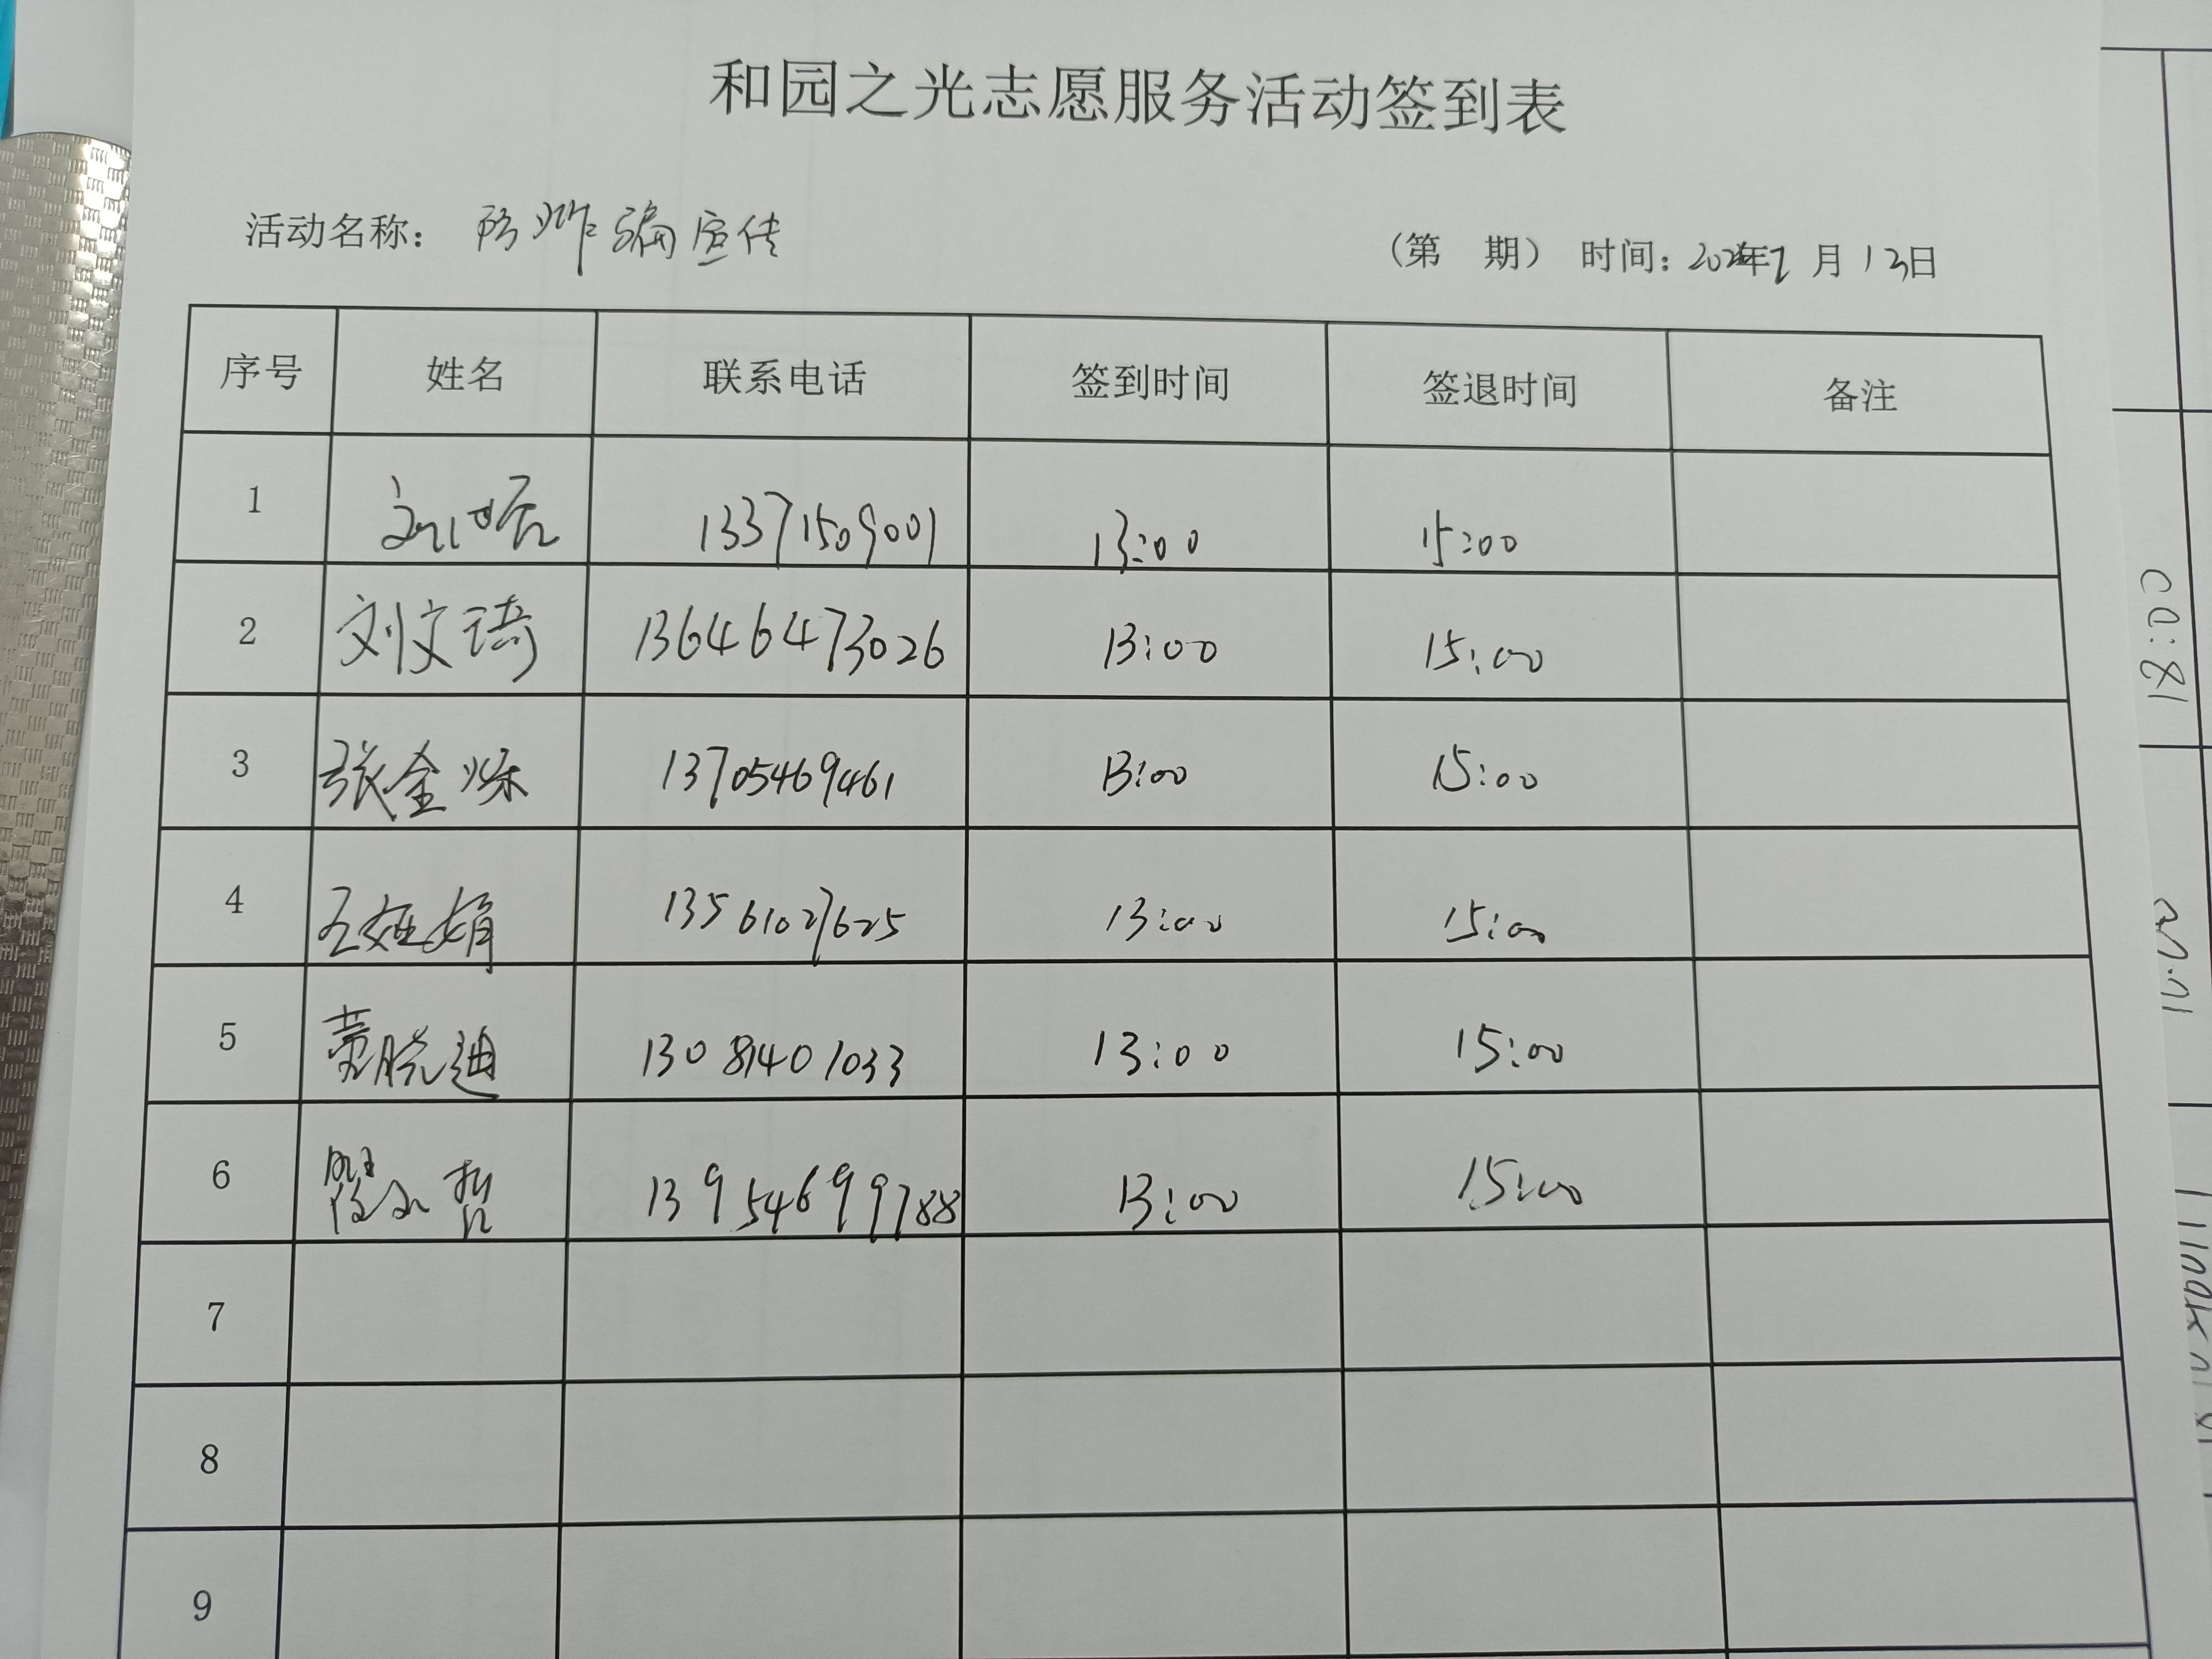 和园之光志愿服务活动签到表
活动名称： 防诈骗宣传 （第 期） 时间： 年7月13日
序号 姓名 联系电话 签到时间 签退时间 备注
1 13371509001 13:00 15:00
2 刘文琦 13646473026 13:00 15:00
3 张金烁 13705469461 13:00 15:00
4 王娅娟 13561027625 13:00 15:00
5 董晓迪 13081401033 13:00 15:00
6 13954699788 13:00 15:00
7
8
9
18:00